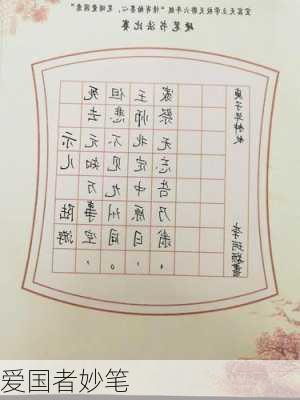 硬笔书法比赛
示儿 陆游
死去元知万事空，
但悲不见九州同。
王师北定中原日，
家祭无忘告乃翁。
庚子年 秋
書
爱国者妙笔